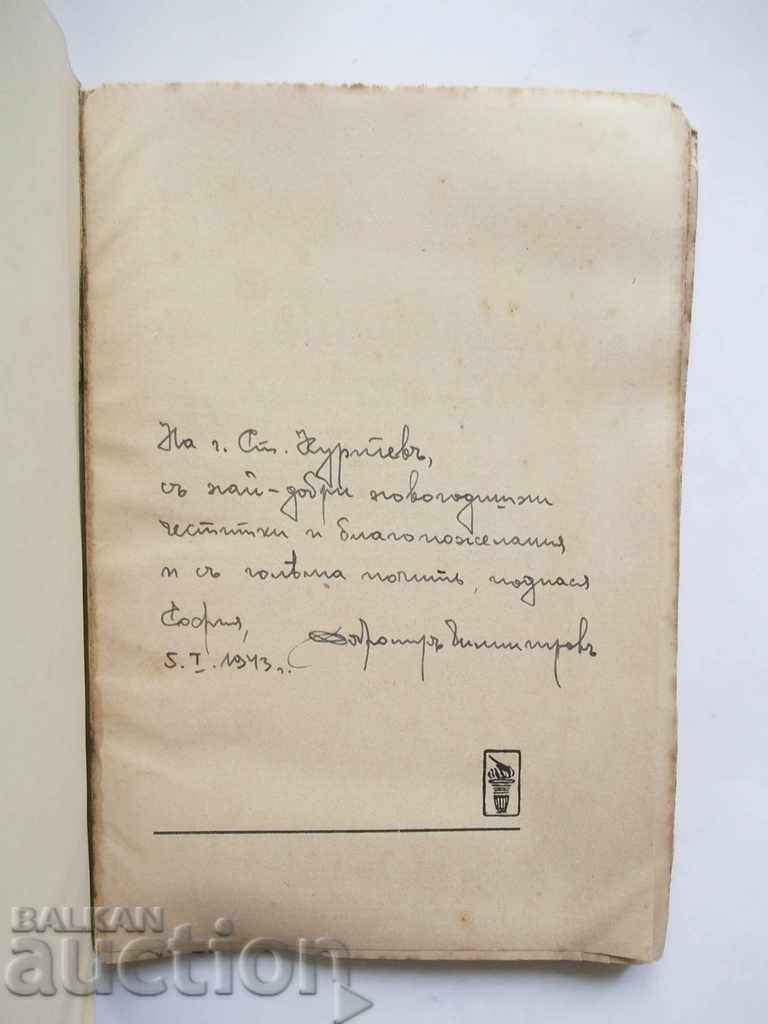 На г. Ст. Куртевъ,
съ най-добри новогодишни
честитки и благопожелания
и съ голѣма почить, поднася
София,
Добромиръ Димитровъ
5.I.1943 г.
BALKAN
auction